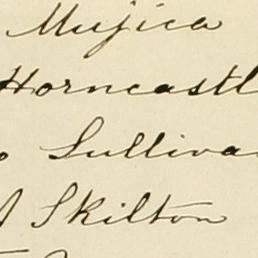 Mujica
Horncastl
o Sullivan
Skilton